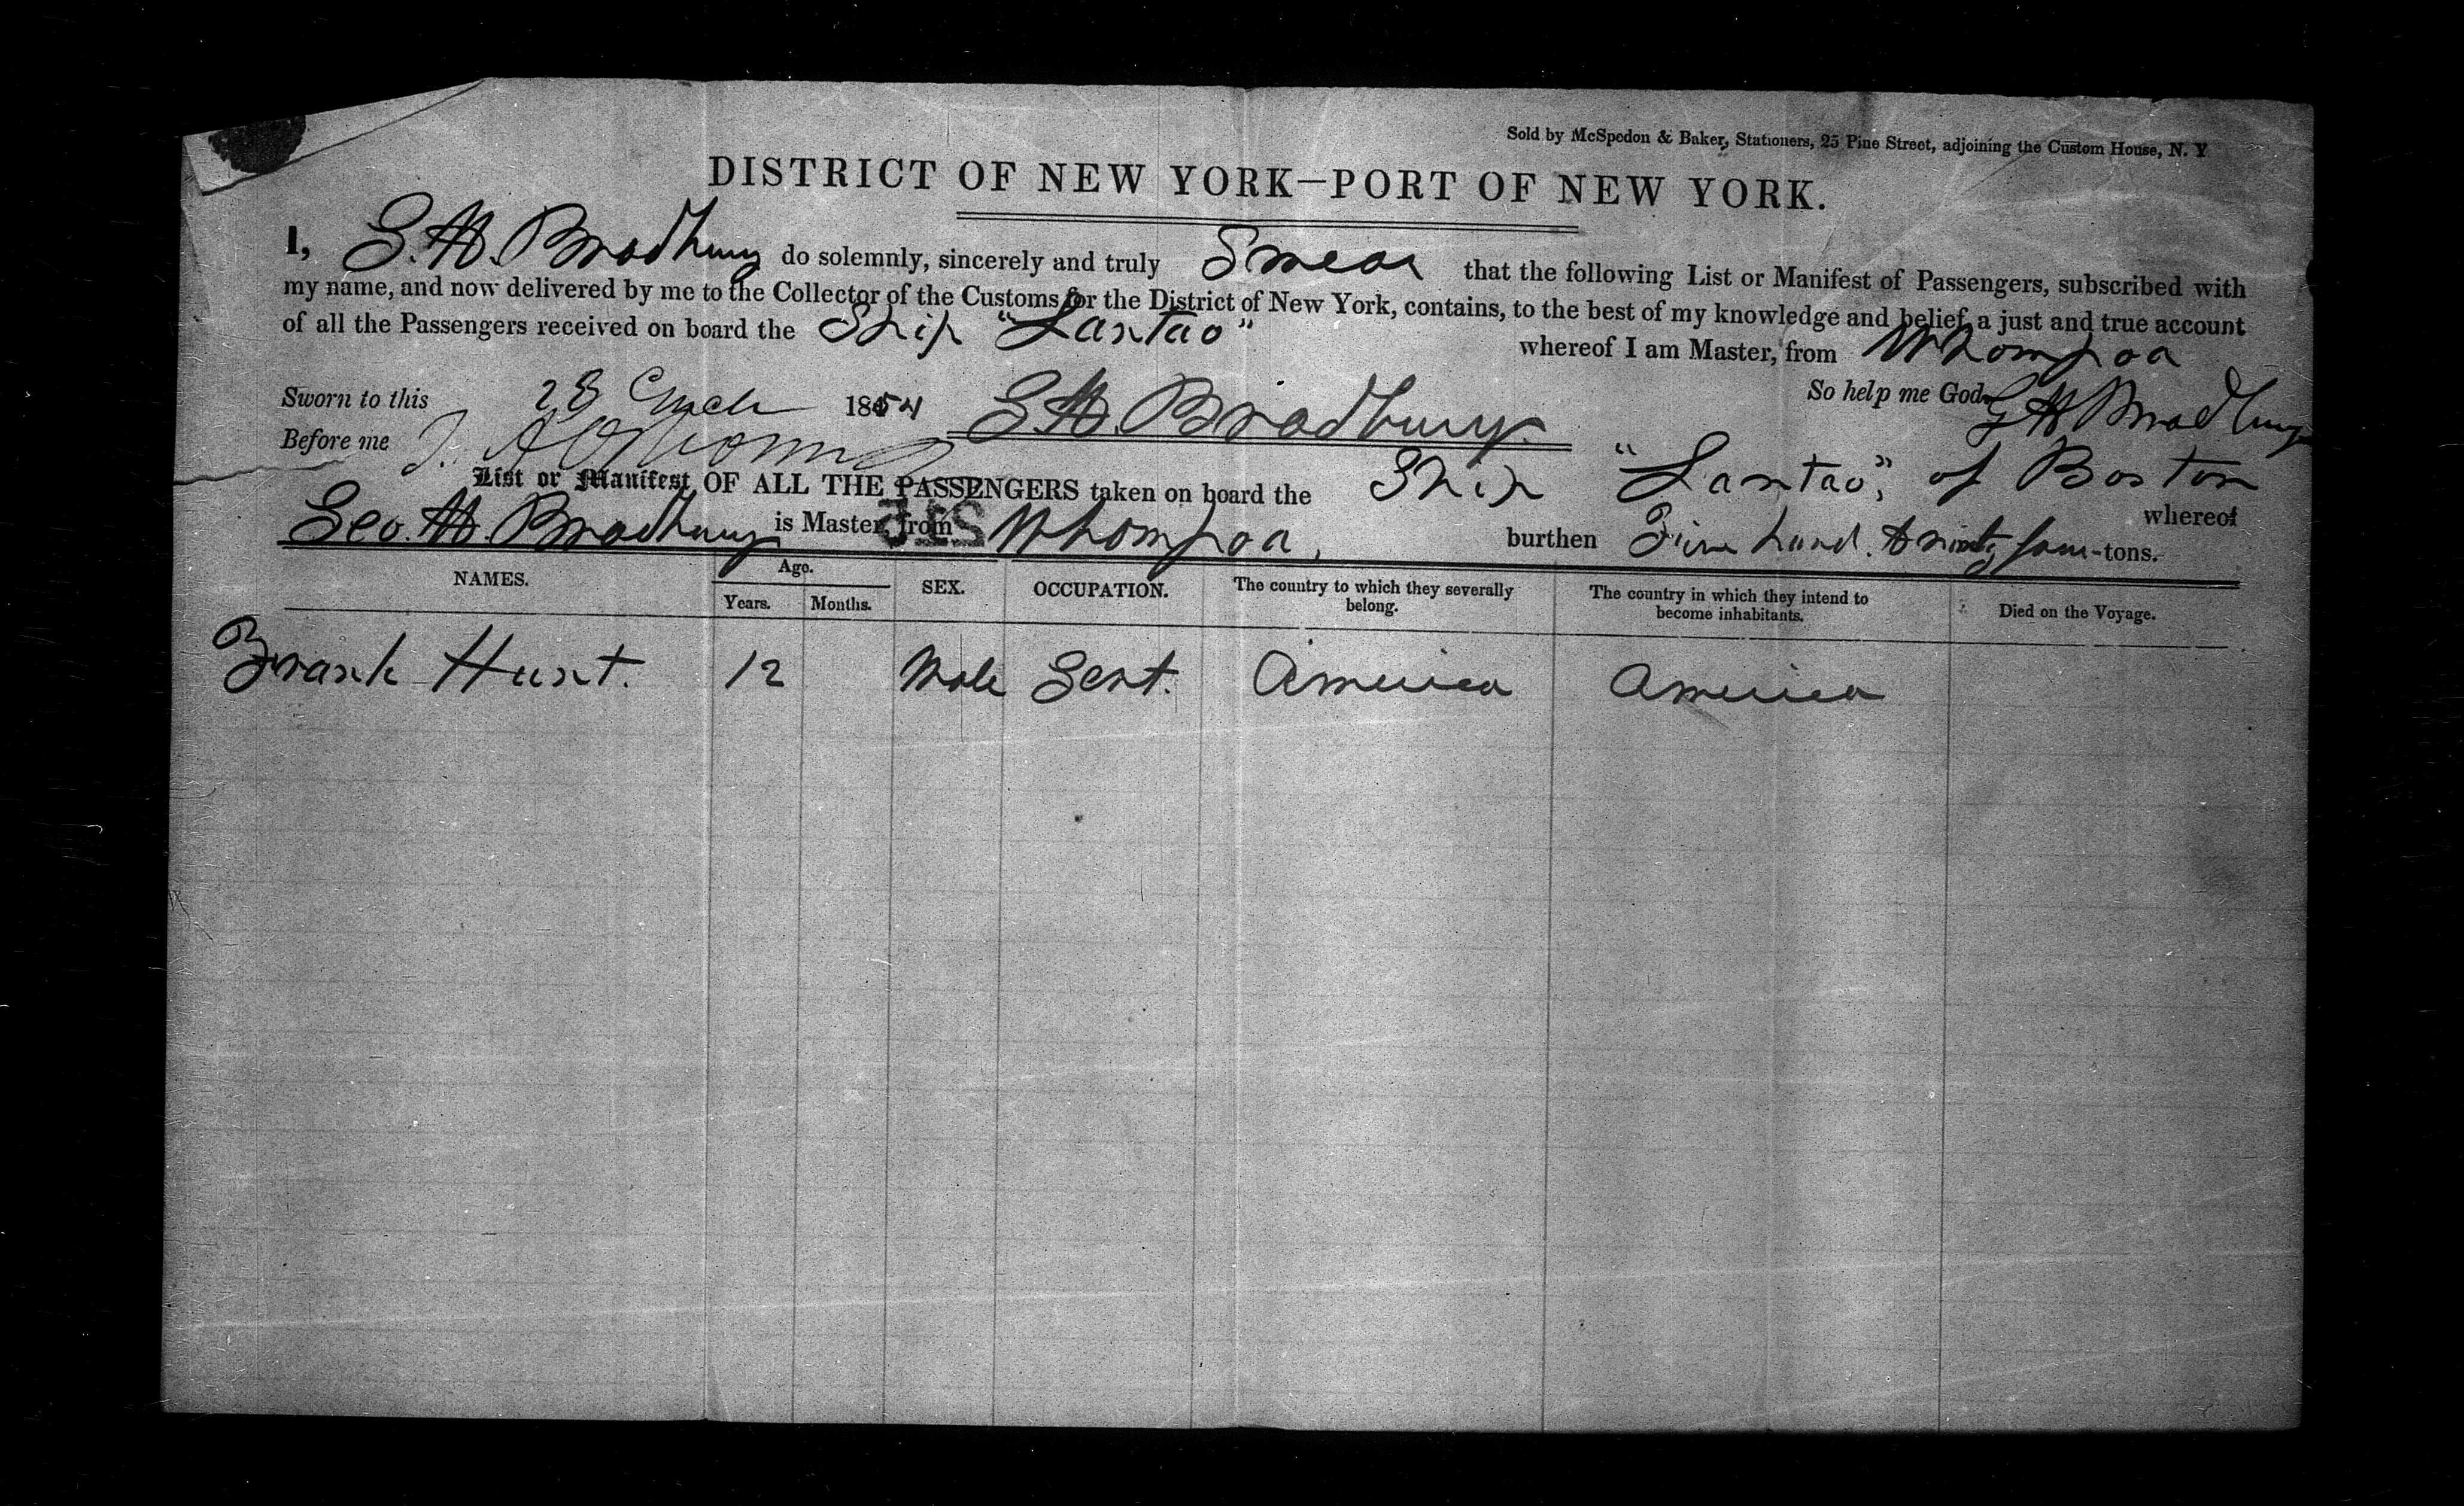 Sold by McSpedon & Baker, Stationers, 25 Pine Street, adjoining the Custom House, N. Y
DISTRICT OF NEW YORK—PORT OF NEW YORK.
I, G. H. Bradbury do solemnly, sincerely and truly Swear that the following List or Manifest of Passengers, subscribed with
my name, and now delivered by me to the Collector of the Customs for the District of New York, contains, to the best of my knowledge and belief, a just and true account
of all the Passengers received on board the Ship "Lantao" whereof I am Master, from Whompoa
Sworn to this 28 1854 G. H. Bradbury So help me God. G H Bradbury
Before me
List or Manifest OF ALL THE PASSENGERS taken on board the Ship "Lantao", of Boston whereof
Geo. H. Bradbury is Master, from Whompoa, burthen Five hund. & ninety four tons.
NAMES. Age. Years. Months. SEX. OCCUPATION. The country to which they severally belong. The country in which they intend to become inhabitants. Died on the Voyage.
Frank Hunt. 12 Male Gent. America America